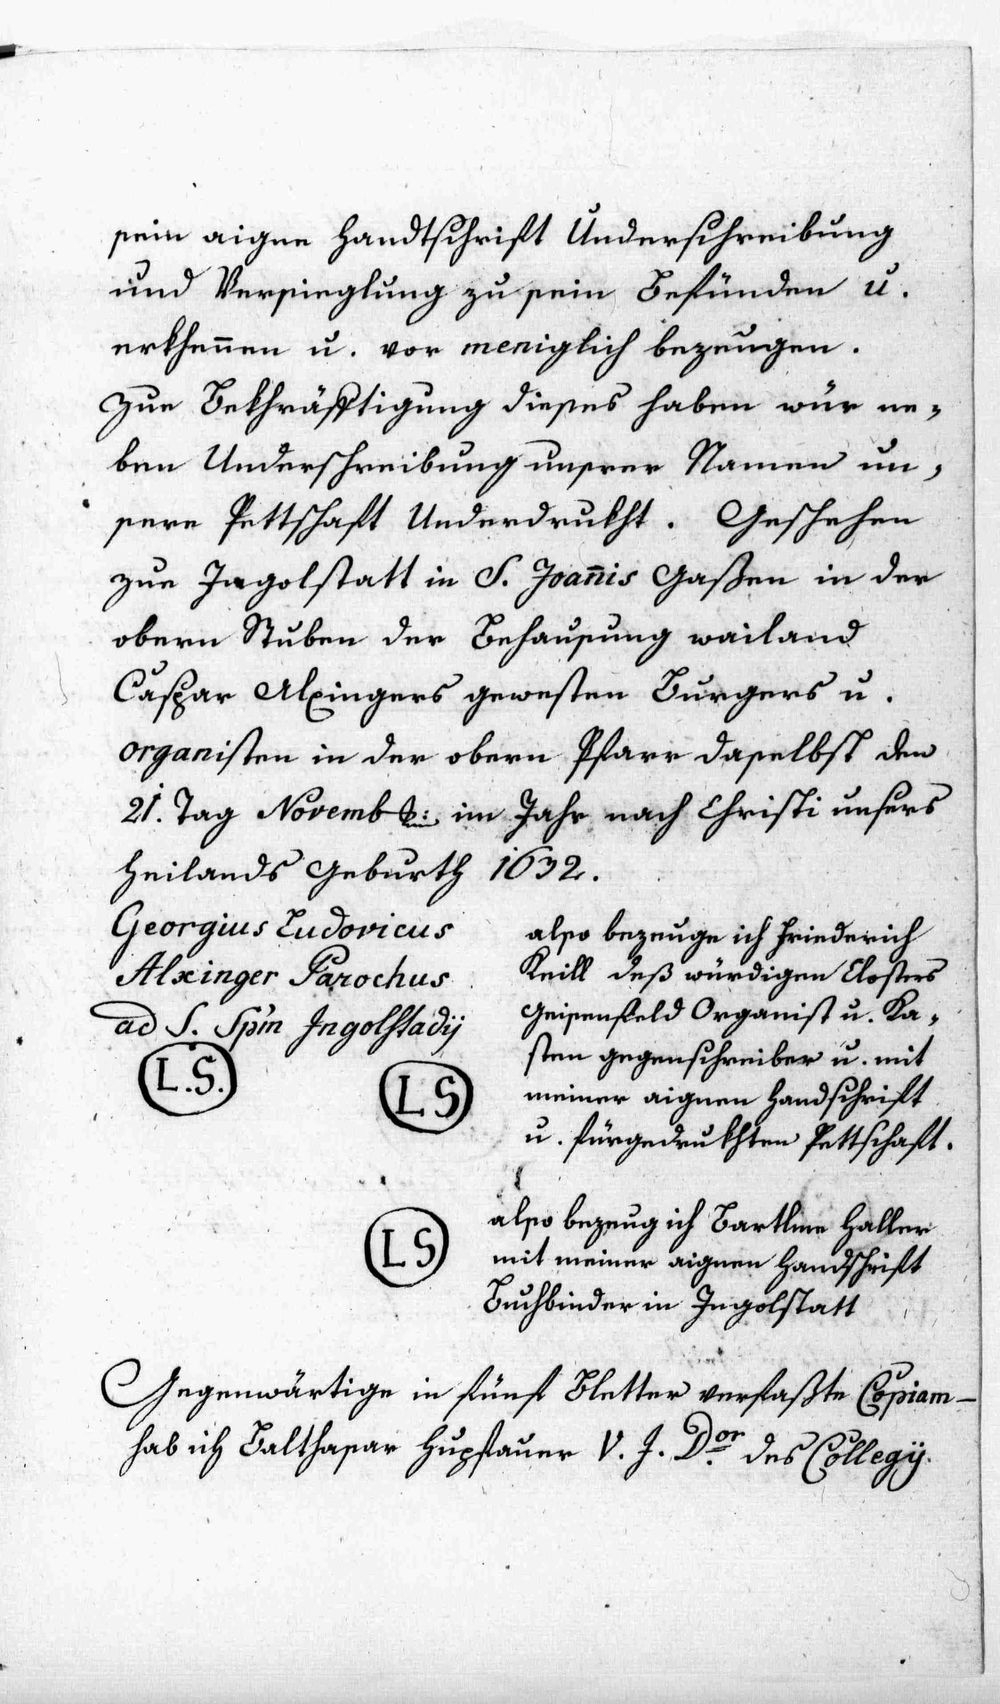 sein aigne Handtschrifft Underschreibung
und Versieglung zu sein Befünden u.
erkhen̄en u. vor meniglich bezeugen.
Zue Bekhräfftigung dieses haben wür ne,
ben Underschreibung unsrer Namen un,
sere Pettschafft Underdrukht. Geschehen
zue Ingolstatt in S. Joan̄is Gaßen in der
obern Stuben der Behausung weiland
Caspar Alxingers gewesten Burgers u.
organisten in der obern Pfarr daselbst den
21. Tag Novemb: im Jahr nach Christi unsers
Heilands Geburth 1632.
Georgius Ludovicus
Alxinger Parochus
ad S. Spm Ingolstadij
L.S.
also bezeuge ich Friederich
Keill deß würdigen Closters
Geisenfeld Organist u. Ka,
sten gegenschreiber u. mit
meiner aignen Handschrift
u. fürgedrukhten Pettschaft.
L S
also bezeug ich Bartlme Haller
mit meiner aignen Handschrift
Buchbinder in Ingolstatt
L S
Gegenwärtige in fünf Bletter verfaßte Copiam
hab ich Balthasar Hupfauer V. J. Dor. des Collegij.